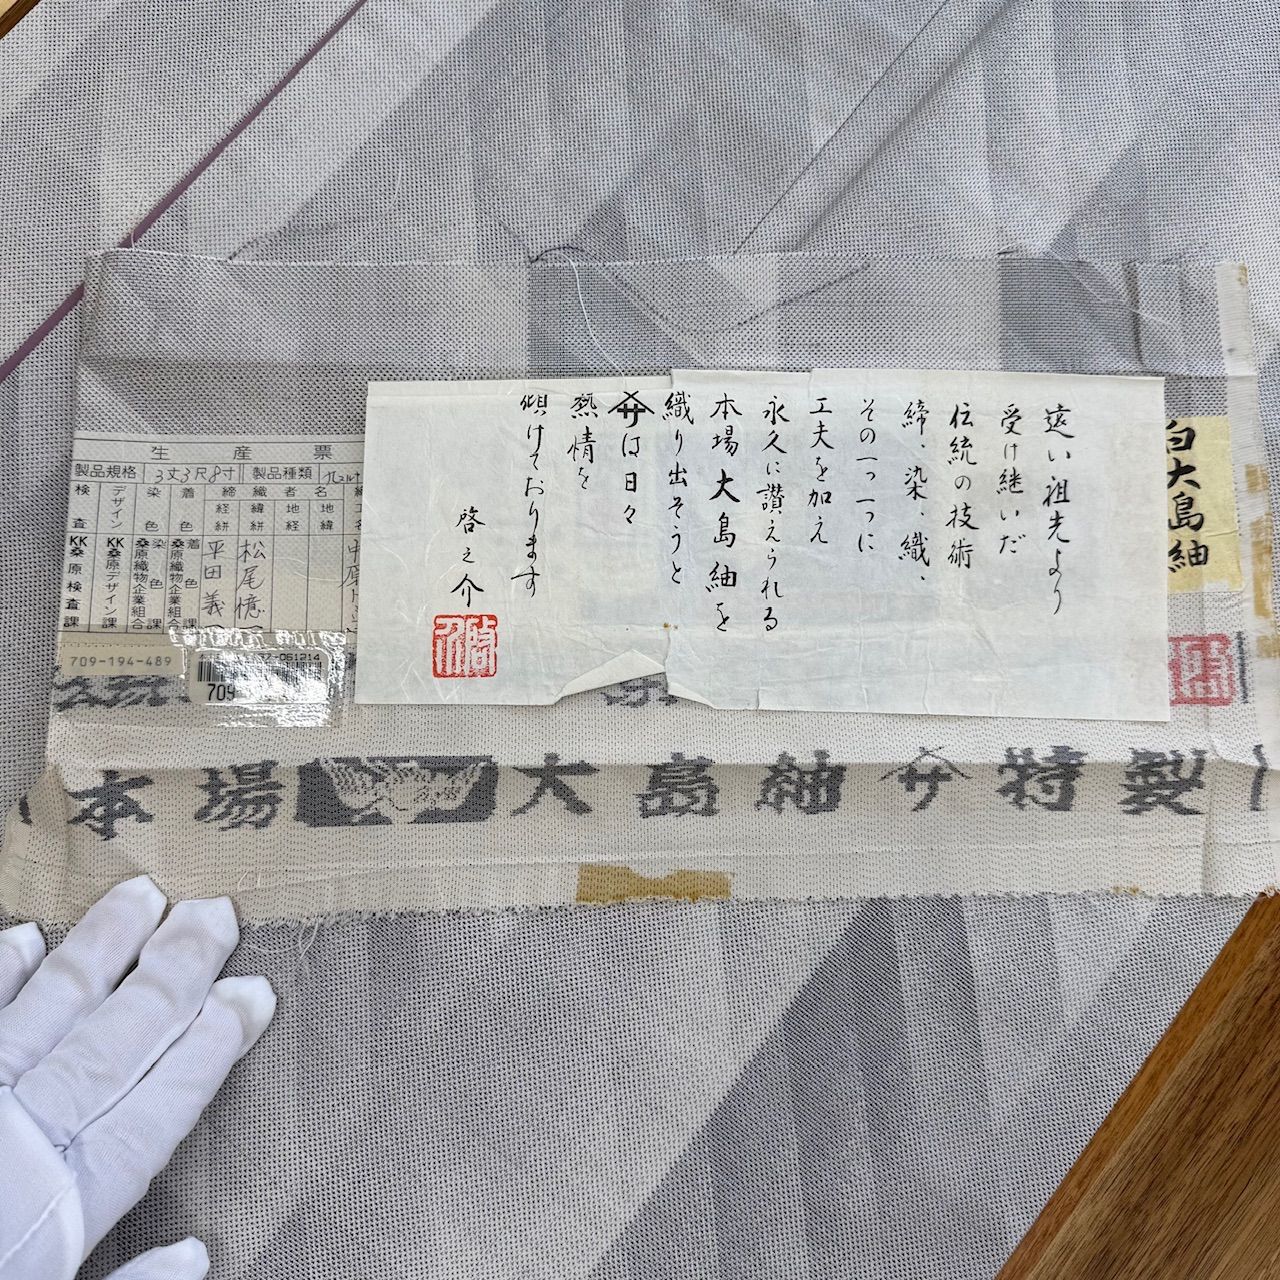 遠い祖先より
受け継いだ
伝統の技術
締、染、織、
その一つ一つに
工夫を加え
永久に讃えられる
本場大島紬を
織り出そうと
サは日々
熱情を
傾けております
啓之介
白大島紬
生産票
製品規格 3丈3尺8寸 製品種類
検査 KK桑原検査課
デザイン KK桑原デザイン課
染色 桑原織物企業組合染色課
着色 桑原織物企業組合着色課
締 経絣 平田義
織 緯絣 松尾憶
者 地経
名 地緯
709-194-489
061214
709
本場 大島紬 サ 特製